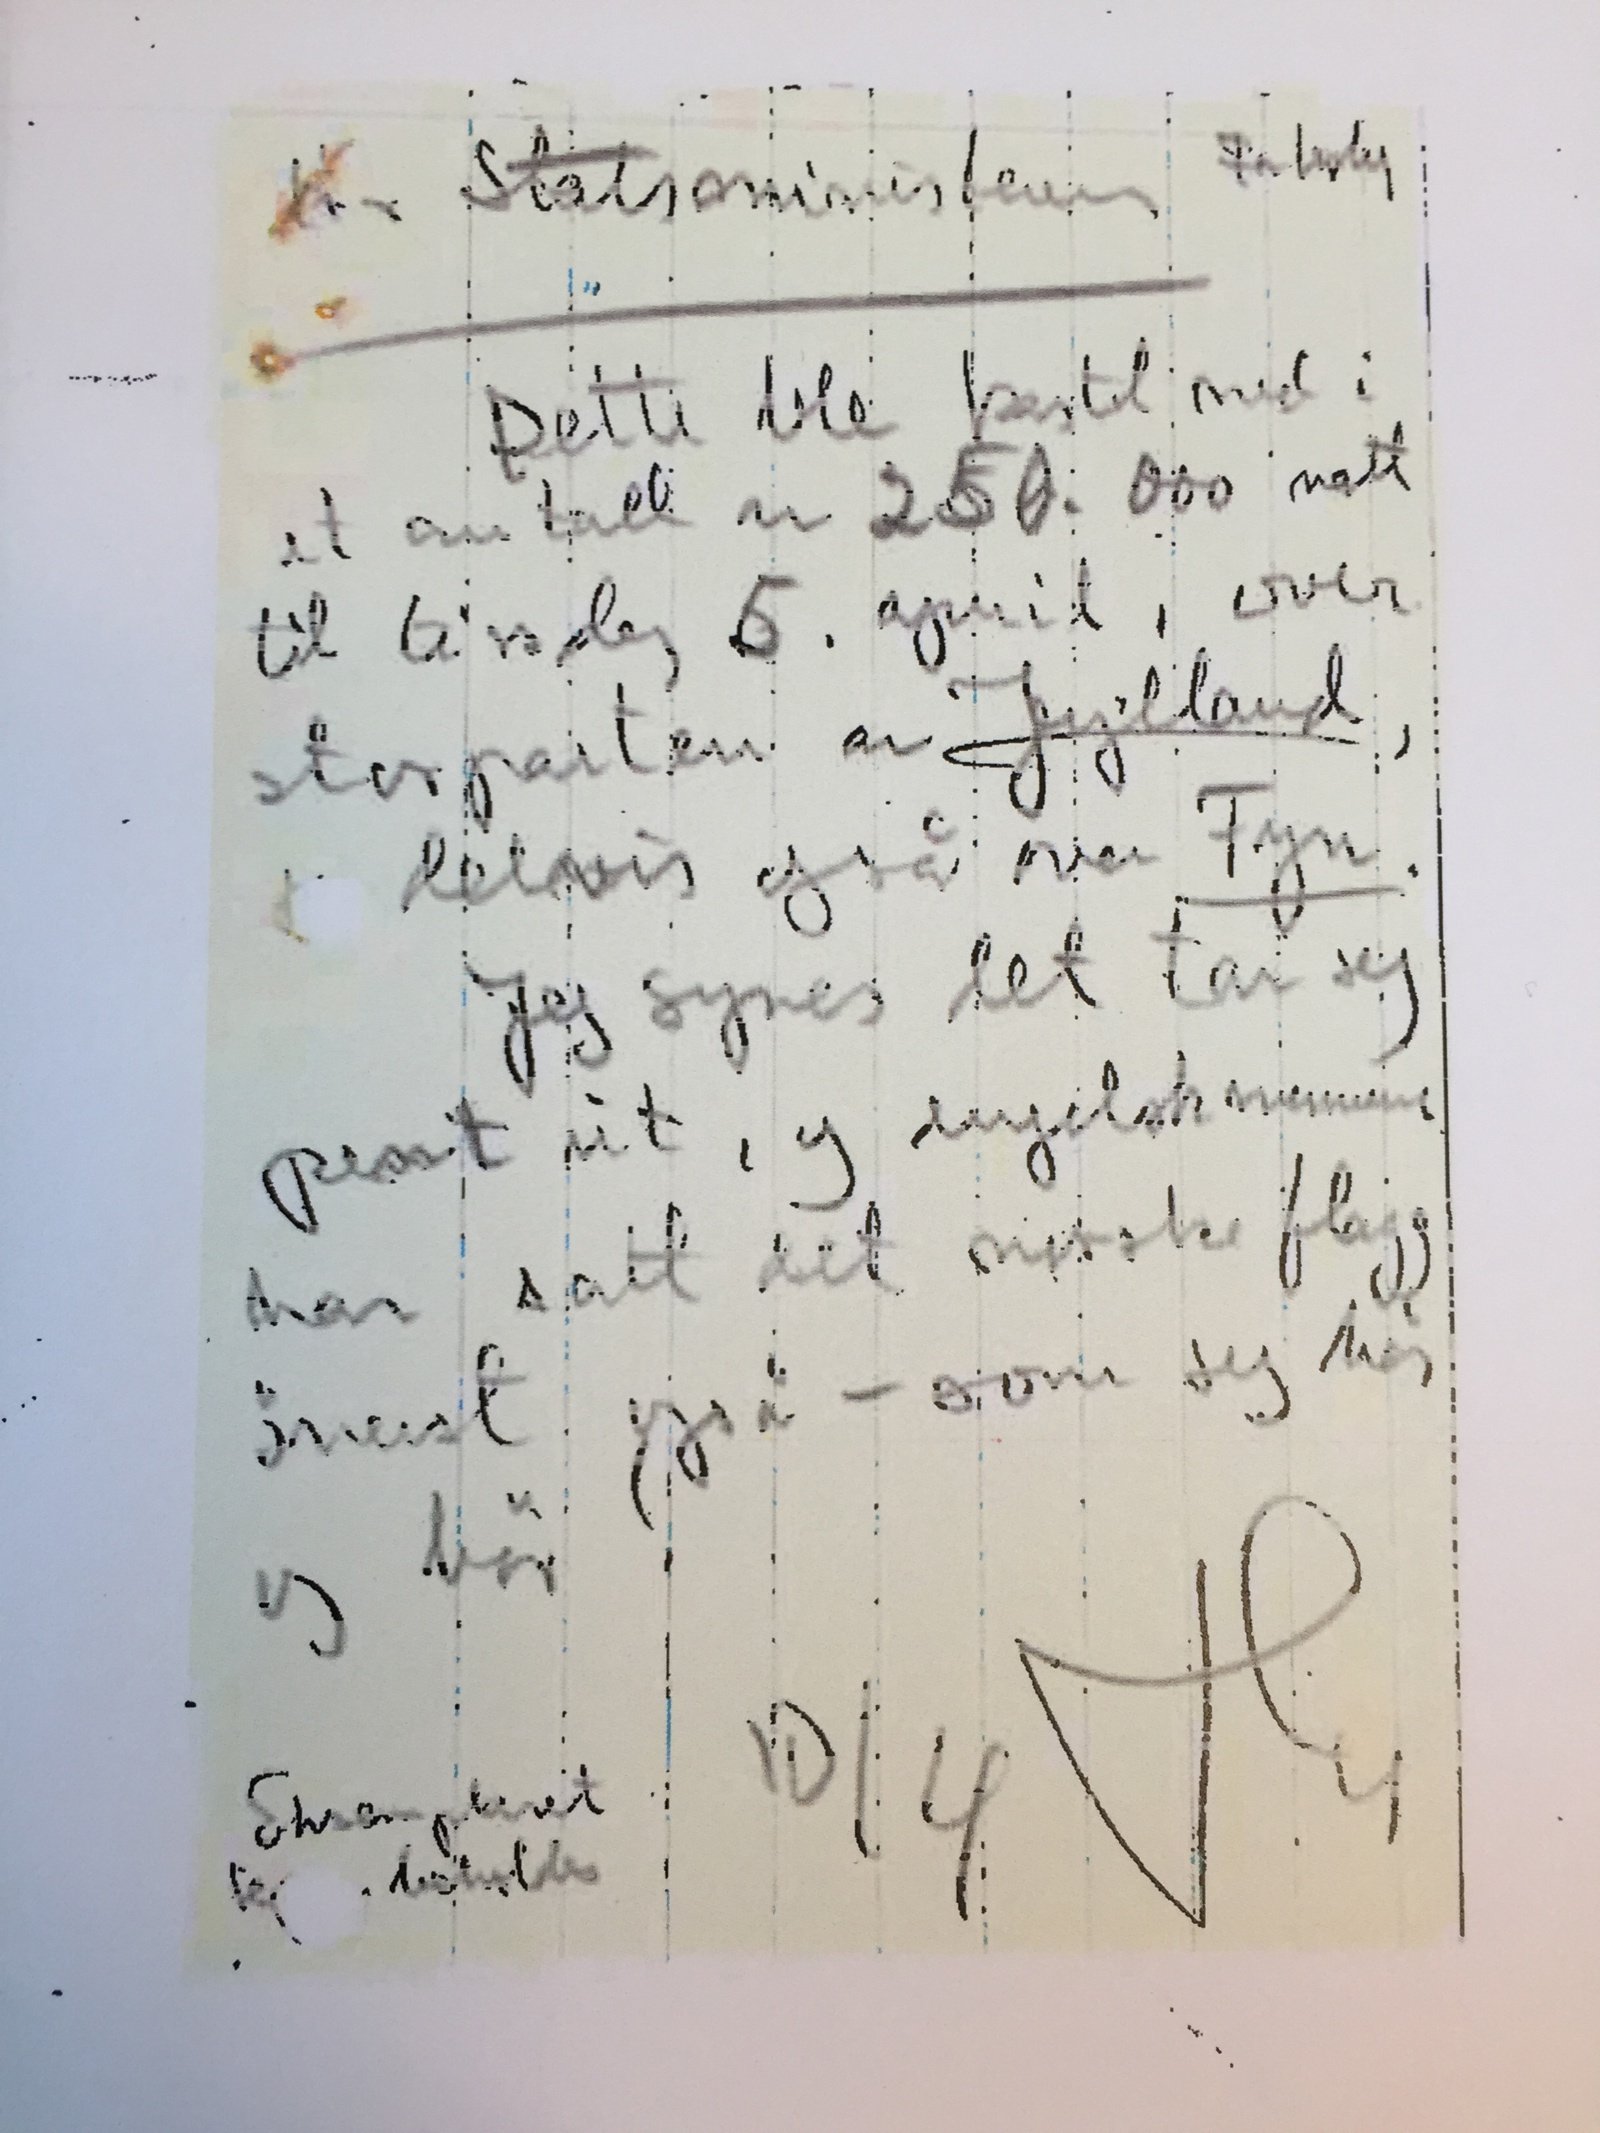 Hr. Statsministeren
Dette ble kastet ned i
et antall av 250.000 natt
til tirsdag 5. april, over
storparten av Jylland,
delvis også over Fyn.
Jeg synes det tar seg
pent ut, og engelskmennene
har satt det norske flagg
øverst også - som seg hør
og bør
10/4
Eksemplaret
beholdes